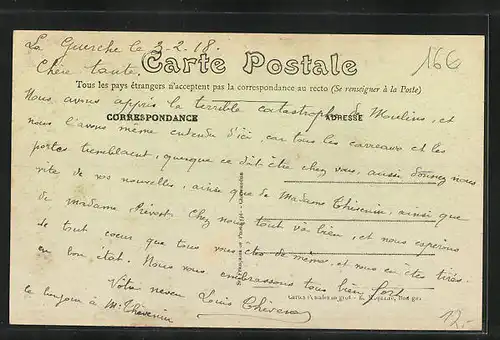 La Guerche le 3-2-18.
166
Chère tante.
Carte Postale
Tous les pays étrangers n'acceptent pas la correspondance au recto (Se renseigner à la Poste)
Nous avons appris la terrible catastrophe de Moulins, et
CORRESPONDANCE
ADRESSE
nous l'avons même entendu d'ici, car tous les carreaux et les
portes tremblaient, quoique ce doit être chez vous, aussi donnez nous
vite de vos nouvelles, ainsi que de Madame Thévenin, ainsi que
de madame Prévost. Chez nous tout va bien, et nous espérons
de tout coeur que tous vous êtes de même, et vous en êtes tirés
en bon état. Nous vous embrassons tous bien fort
Votre neveu Louis
le bonjour à Mr Thévenin
12.-